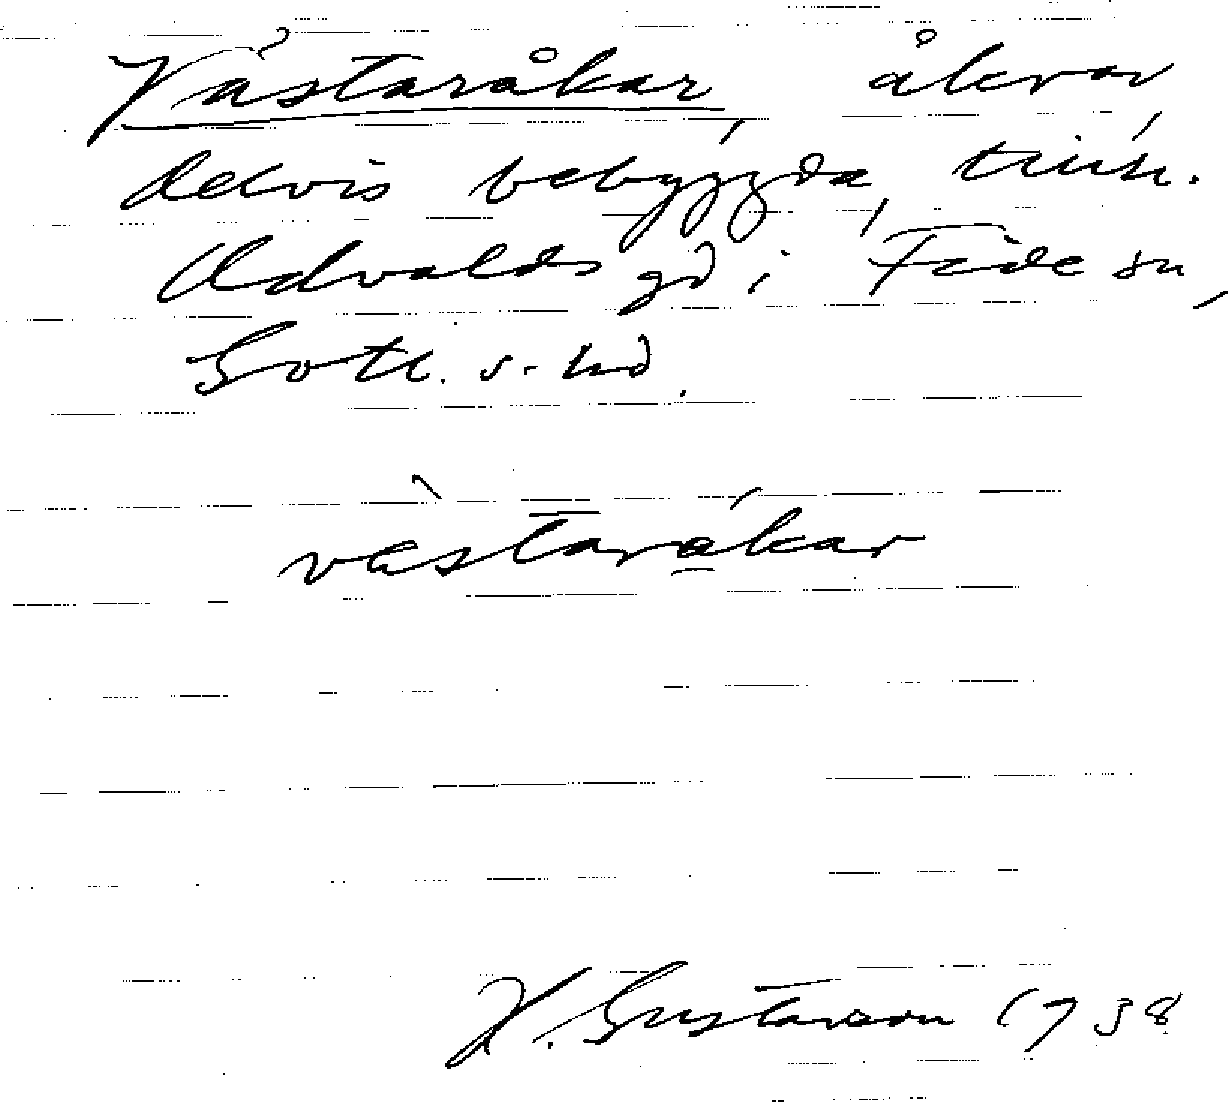 Västaråkar, åkrar,
delvis bebyggda, tillh.
Udvalds gd i Fide sn,
Gotl. s. hd.
vàstaråkar
H. Gustavson 1938